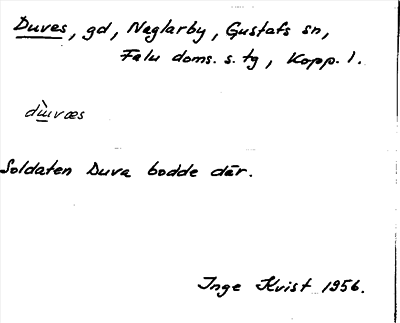 Duves, gd, Naglarby, Gustafs sn,
Falu doms. s. tg, Kopp. l.
dɯ̀væs
Soldaten Duva bodde där.
Inge Kvist 1956.